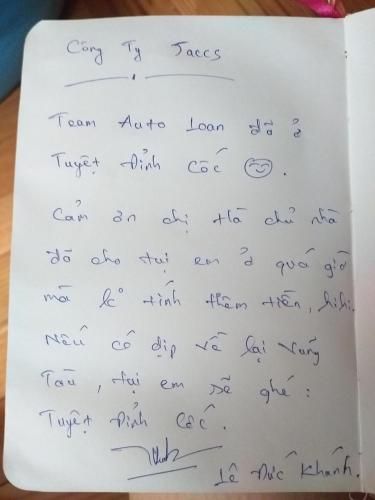 Công Ty Jaccs
Team Auto Loan đã ở
Tuyệt Đỉnh Cốc 😊.
Cảm ơn chị Hà chủ nhà
đã cho tụi em ở quá giờ
mà ko tính thêm tiền, hihi.
Nếu có dịp về lại Vũng
Tàu, tụi em sẽ ghé:
Tuyệt Đỉnh Cốc.
Lê Đức Khánh.